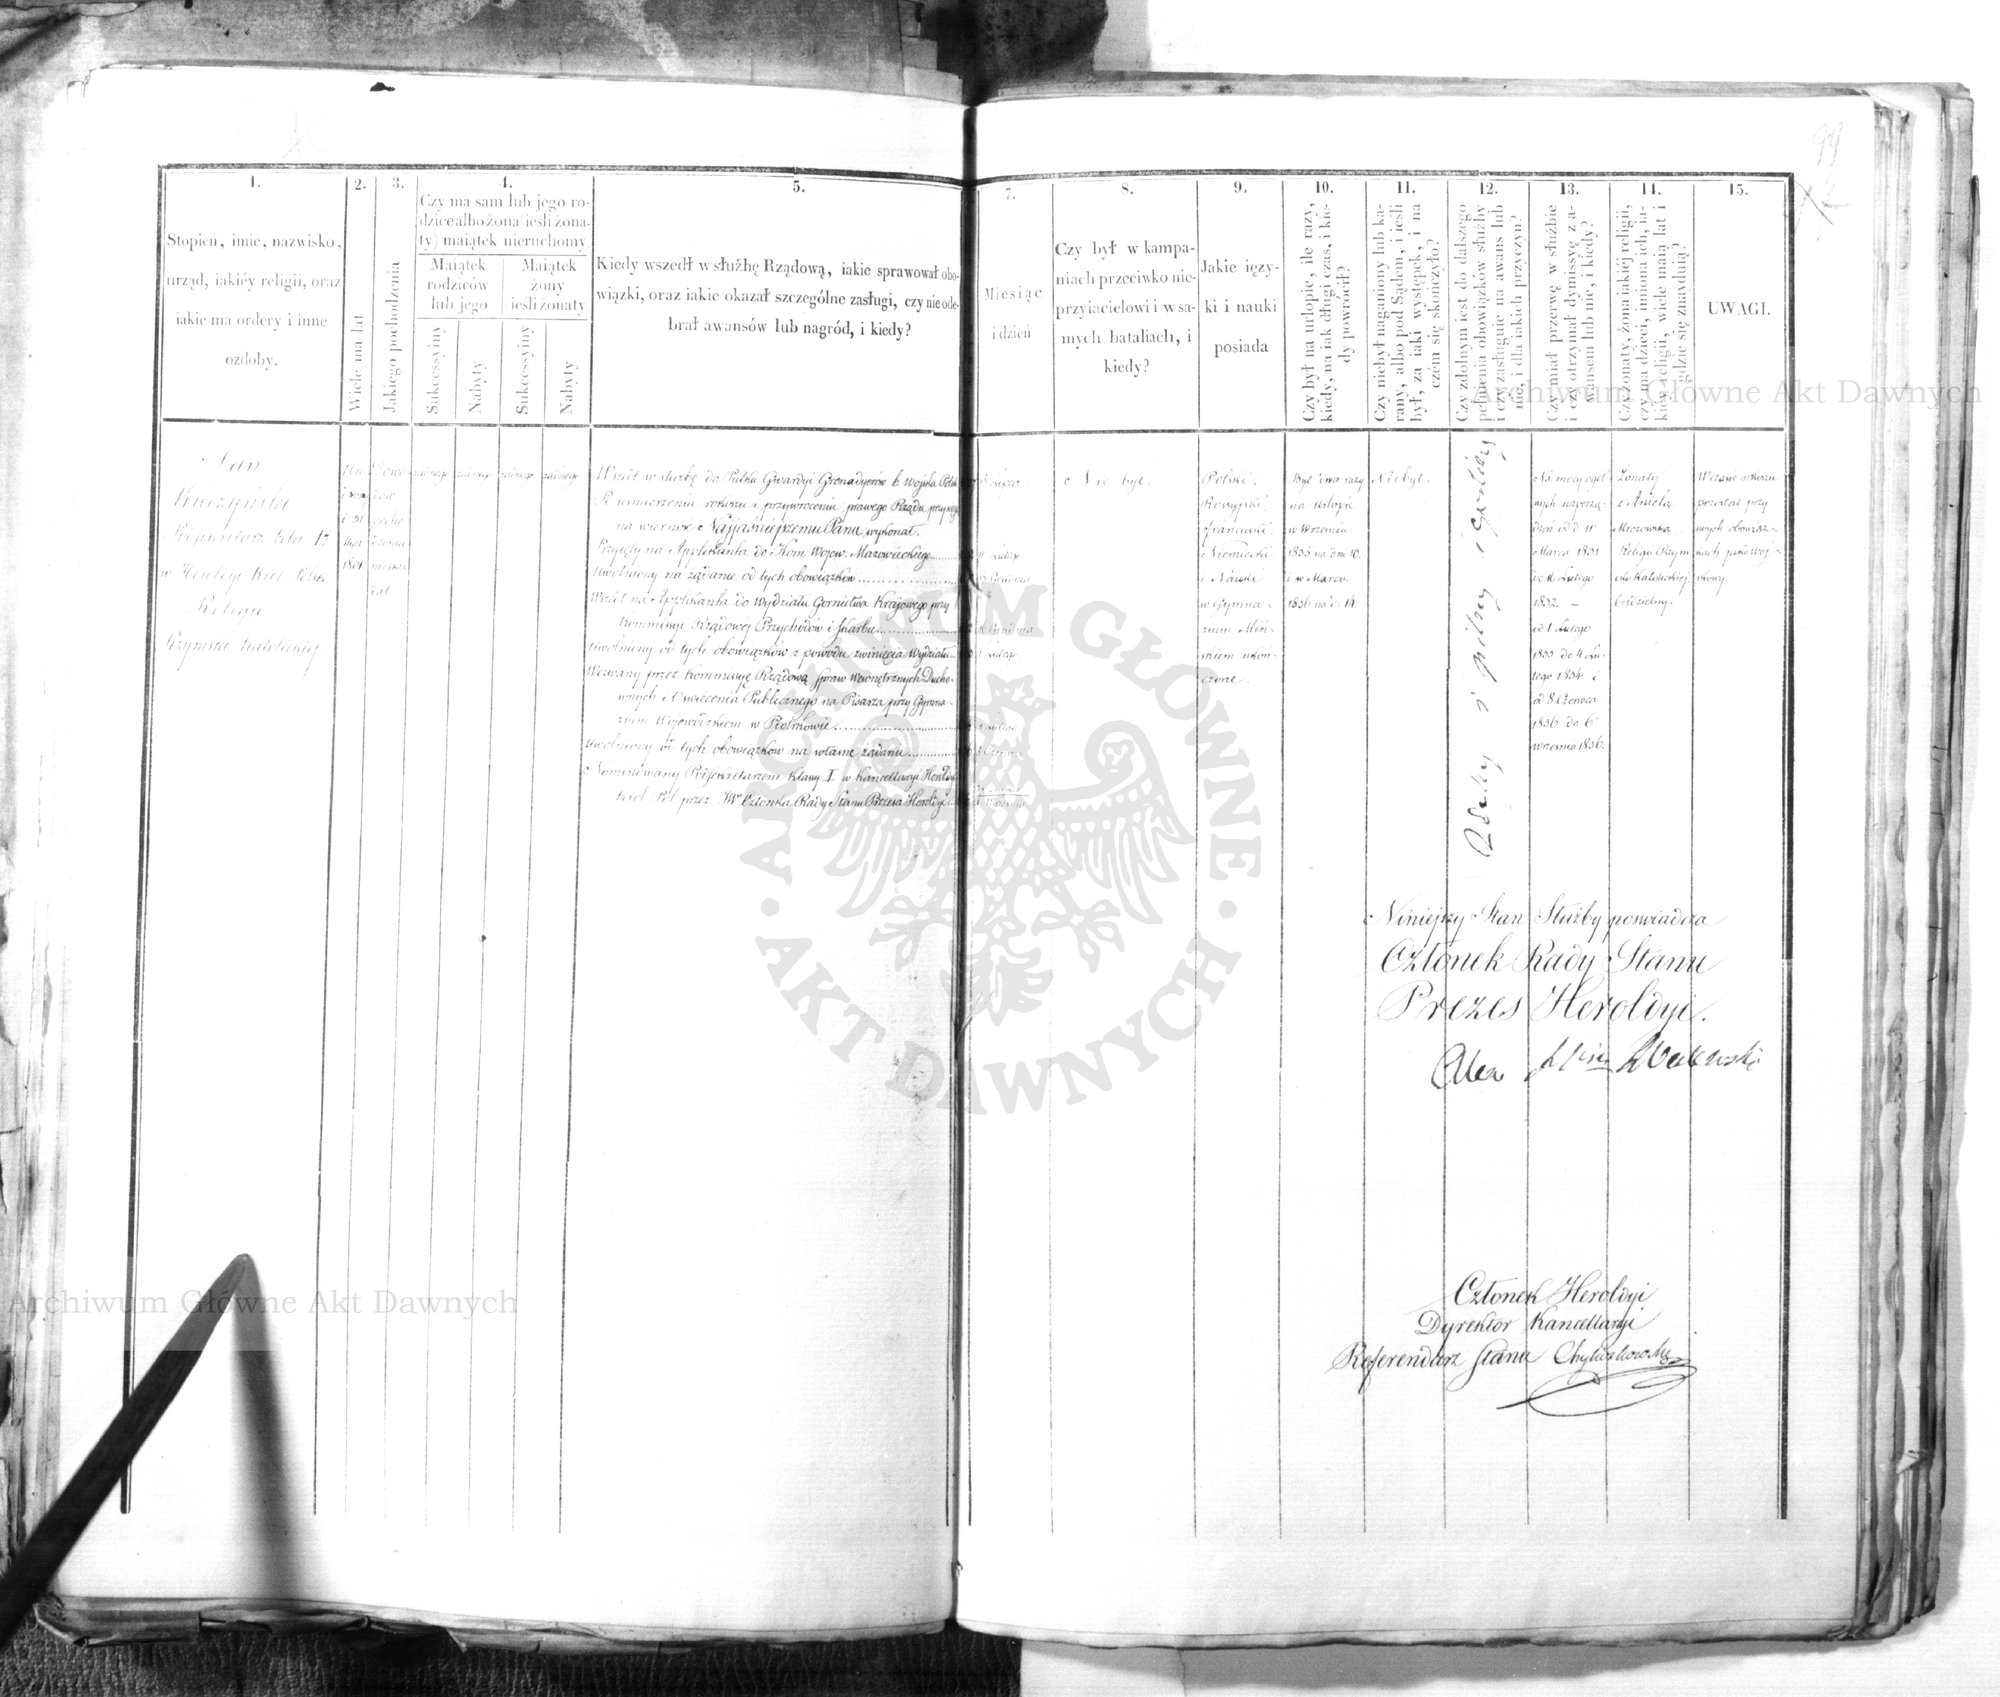 99
1.
Stopień, imie, nazwisko,
urząd, iakiéy religii, oraz
iakie ma ordery i inne
ozdoby.
2.
Wiele ma lat
3.
Jakiego pochodzenia
4.
Czy ma sam lub jego ro-
dzice albo żona (ieśli żona-
ty) maiątek nieruchomy
Maiątek
rodziców
lub jego
Maiątek
żony
ieśli żonaty
Sukcessyiny
Nabyty
Sukcessyiny
Nabyty
5.
Kiedy wszedł w służbę Rządową, iakie sprawował obo-
wiązki, oraz iakie okazał szczególne zasługi, czy nie ode-
brał awansów lub nagród, i kiedy?
7.
Miesiąc
i dzień
8.
Czy był w kampa-
niach przeciwko nie-
przyiacielowi i w sa-
mych bataliach, i
kiedy?
9.
Jakie ięzy-
ki i nauki
posiada
10.
Czy był na urlopie, ile razy,
kiedy, na iak długi czas, i kie-
dy powrócił?
11.
Czy niebył naganiony lub ka-
rany, albo pod Sądem, i ieśli
był, za iaki występek, i na
czém się skończyło?
12.
Czy zdolnym iest do dalszego
pełnienia obowiązków służby
i czy zasługuie na awans lub
nie, i dla iakich przyczyn?
13.
Czy miał przerwę w służbie
i czy otrzymał dymissyę z a-
wansem lub nie, i kiedy?
14.
Czy żonaty, żona iakiéj religii,
czy ma dzieci, imiona ich, ia-
kiéy religii, wiele maią lat i
gdzie się znayduią?
15.
UWAGI.
Jan
Kuczyński
w Heroldyi Król. Polsk.
Religii
Rzymsko Katolickiej
żadnego żadnego żadnego żadnego
Wszedł w służbę do Pułku Gwardyi Grenadyerów b. Wojska Polsk.
Po uśmierzeniu rokoszu i przywróceniu prawego Rządu przysięgę
na wierność Najjaśniejszemu Panu wykonał.
Przyjęty na Applikanta do Kom. Wojew. Mazowieckiego
Uwolniony na żądanie od tych obowiązków
Wszedł na Applikanta do Wydziału Górnictwa Krajowego przy
Kommissyi Rządowej Przychodów i Skarbu
Uwolniony od tych obowiązków z powodu zwinięcia Wydziału
Wezwany przez Kommissyę Rządową Spraw Wewnętrznych Ducho-
wnych i Oświecenia Publicznego na Pisarza przy Gymna-
zium Wojewódzkiem w Piotrkowie
Uwolniony od tych obowiązków na własne żądanie
Nominowany Podsekretarzem Klassy I w Kancellaryi Heroldyi
Król. Pol. przez JW. Członka Rady Stanu Prezesa Heroldyi
Nie był.
Polski,
Rossyjski,
francuski
Niemiecki
i Nauki
w Gymna-
zium Miń-
skiem ukoń-
czone.
Był dwa razy
na urlopie
w Wrześniu
1835 na dni 10.
i w Marcu
1836 na d. 14.
Niebył.
Zdolny i pilny i gorliwy
Na mocy ogól-
nych rozporzą-
dzeń od d. 11
Marca 1831
do 16 Lutego
1832. —
od 1 Lutego
1833 do 4 Lu-
tego 1834 i
od 8 Czerwca
1836 do 6
Września 1836.
Żonaty
z Anielą
Mrozowską
Religii Rzym-
sko Katolickiej
bezdzietny.
W czasie rokoszu
pozostał przy
swych obowiąz-
kach jako woj-
skowy.
Niniejszy Stan Służby poświadcza
Członek Rady Stanu
Prezes Heroldyi.
Członek Heroldyi
Dyrektor Kancellaryi
Referendarz Stanu
ARCHIWUM GŁÓWNE
AKT DAWNYCH
Archiwum Główne Akt Dawnych
Archiwum Główne Akt Dawnych